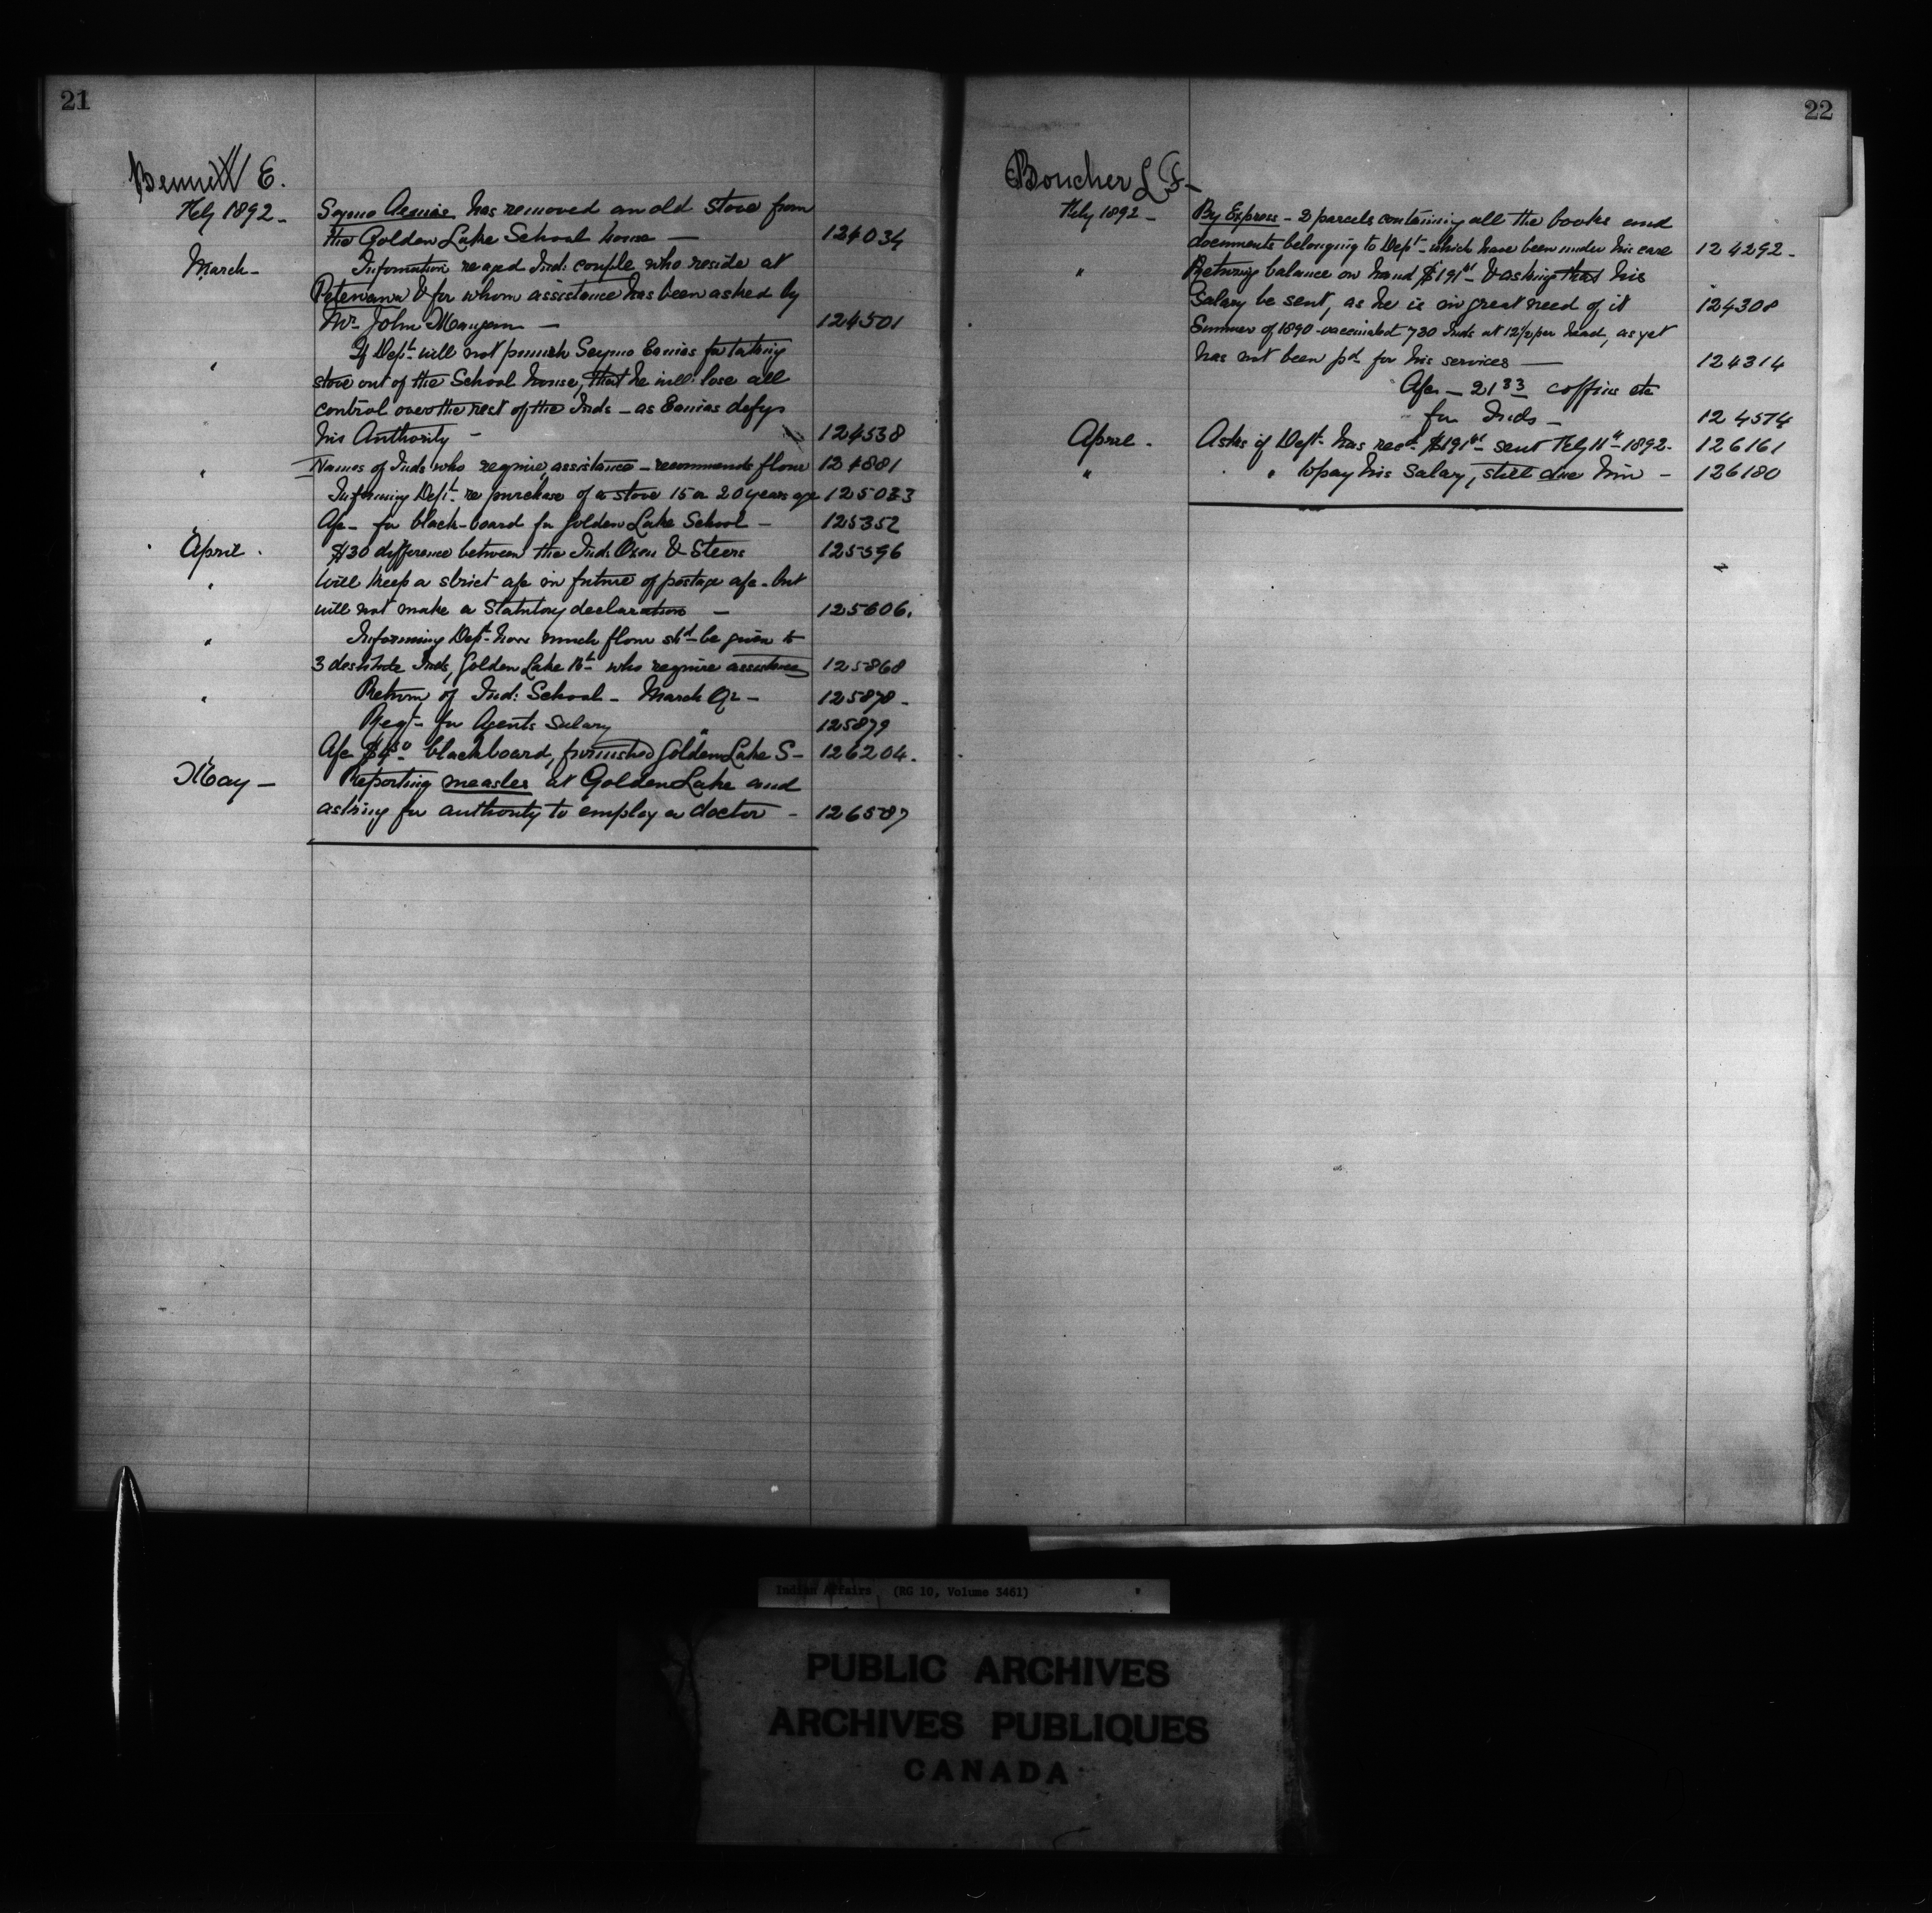 21
Bennett E.
Feby 1892 - Seymo Aemias has removed an old stove from
the Golden Lake School house — 124034
March - Information re aged Ind: couple who reside at
Petewawa & for whom assistance has been asked by
Mr. John Mangan — 124501
" If Dept. will not punish Seymo Eamias for taking
stove out of the School house, that he will lose all
control over the rest of the Inds - as Eamias defys
his Authority - 124538
" Names of Inds who require assistance - recommends flour 124881
Informing Dept. re purchase of a stove 15 or 20 years ago 125033
A/c - for black-board for Golden Lake School - 125352
April . $30 difference between the Ind. Oxen & Steers 125596
" Will keep a strict a/c in future of postage a/c - but
will not make a Statutory declaration - 125606.
" Informing Dept. how much flour shd be given to
3 destitute Inds, Golden Lake Bd who require assistance 125868
" Return of Ind: School - March Qr - 125878 -
Reqt - for Agents Salary " 125879
A/c $4.50 - blackboard, furnished Golden Lake S - 126204.
May - Reporting measles at Golden Lake and
asking for authority to employ a doctor - 126587
22
Boucher L F -
Feby 1892 - By Express - 2 parcels containing all the books and
documents belonging to Dept - which have been under his care 124292 -
" Returning balance on hand $191 - & asking that his
Salary be sent, as he is in great need of it 124308
Summer of 1890 - vaccinated 730 Inds at 12½ per head, as yet
has not been pd for his services — 124314
A/c - 21 33 coffins etc
for Inds - 124574
April - Asks if Dept. has recd $191 - sent Feby 11th - 1892 - 126161
" " to pay his Salary, still due him - 126180
Indian Affairs (RG 10, Volume 3461)
PUBLIC ARCHIVES
ARCHIVES PUBLIQUES
CANADA